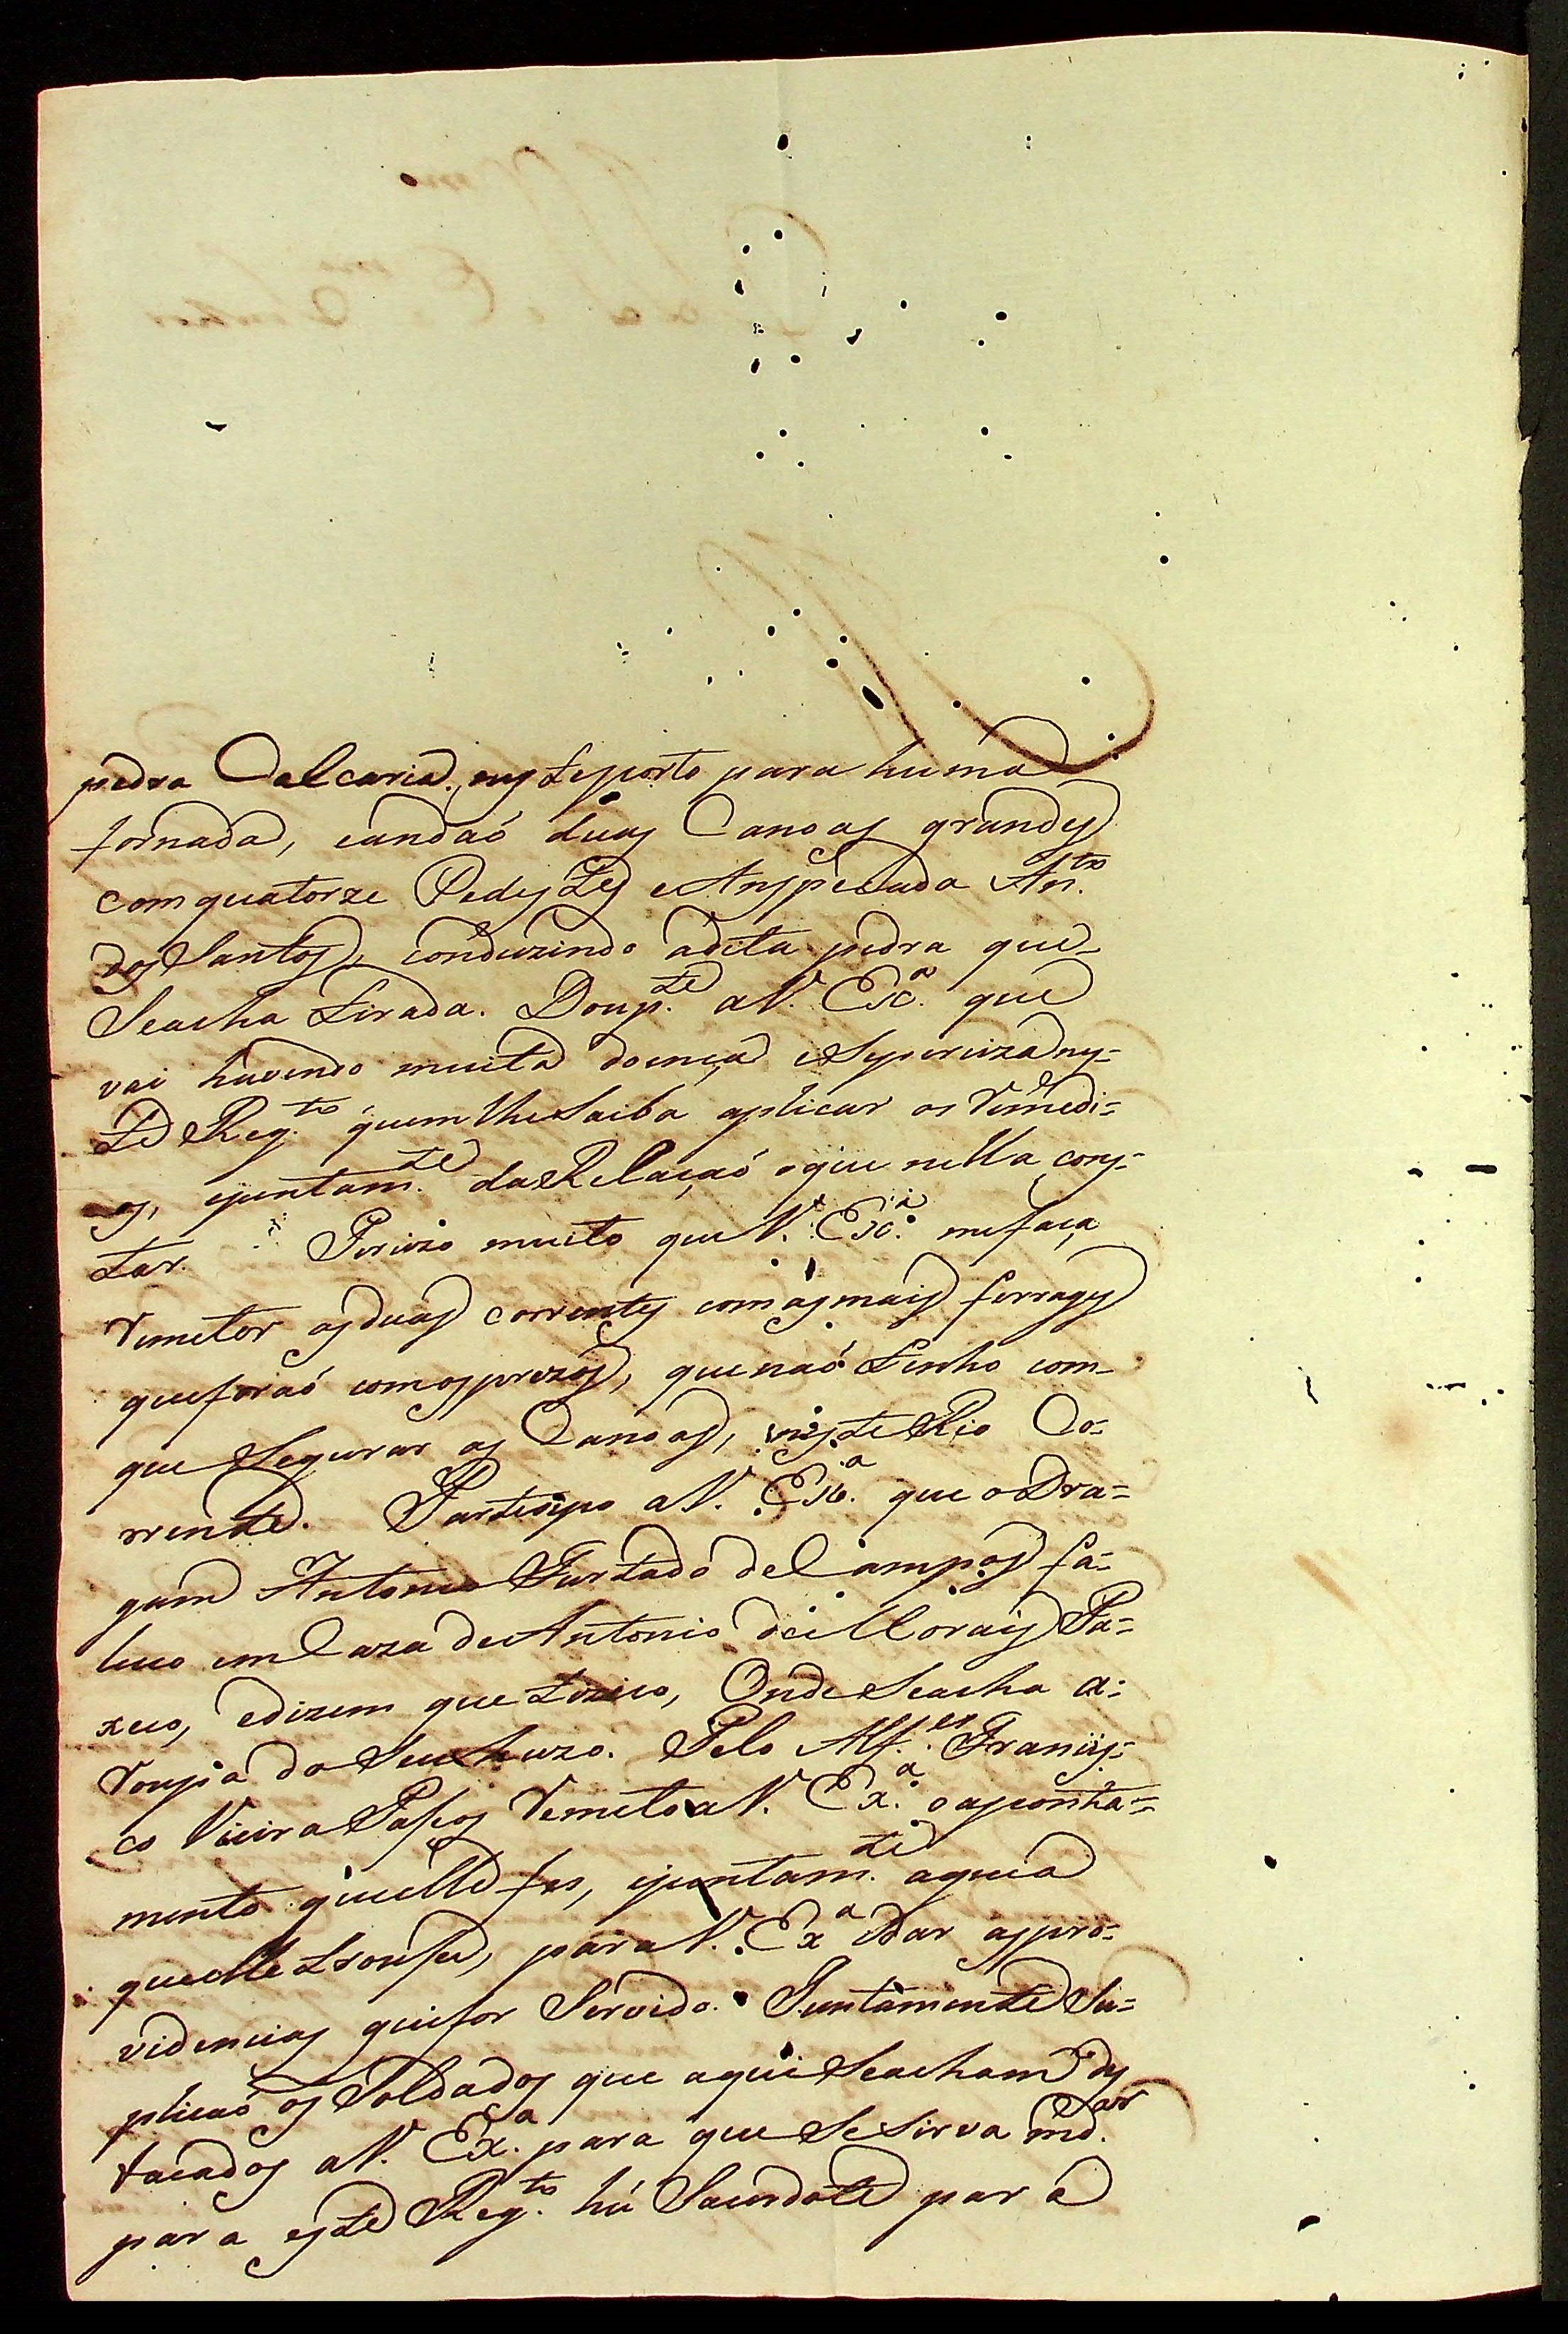 pedra Calcaria, nesteporto para huma
fornada, eandaó duas Canoas grandes
com quatorze Pedestes eAnspecada An.to
dos Santos, conduzindo adita pedra que
Seacha tirada. Doup.te aV. Exc.a que
vai havendo muita doença, eSepreciza nes=
te Reg.to quem lhe Saiba aplicar os remedi=
os, ejuntam.te da Relaçaó oque nella cons=
tar. Precizo muito que V. Exc.a mefaça
remeter asduas correntes com asmais ferrages
queforaó comosprezos, que naó tenho com
que Segurar as Canoas, neste Rio Co=
rrente. Partecipo aV. Exc.a que o Dra=
gam Antonio Furtado deCampos fa=
leceo em Caza de Antonio de Morais Pa=
xeco, edizem que tizico, Onde Seacha a
roupa do Seu huzo. Pelo Alf.es Francis=
co Vieira Passos remeto aV. Ex.a oapontta=
mento queelle fes, ejuntam.te aguia
queelle trousse, para V. Ex.a dar aspro=
videncias quefor Servido. Juntamente Su=
plicaó os Soldados que aqui Seacham des
tacados aV. Ex.a para que Se sirva md.ar
para este Reg.to hú Sacerdote para